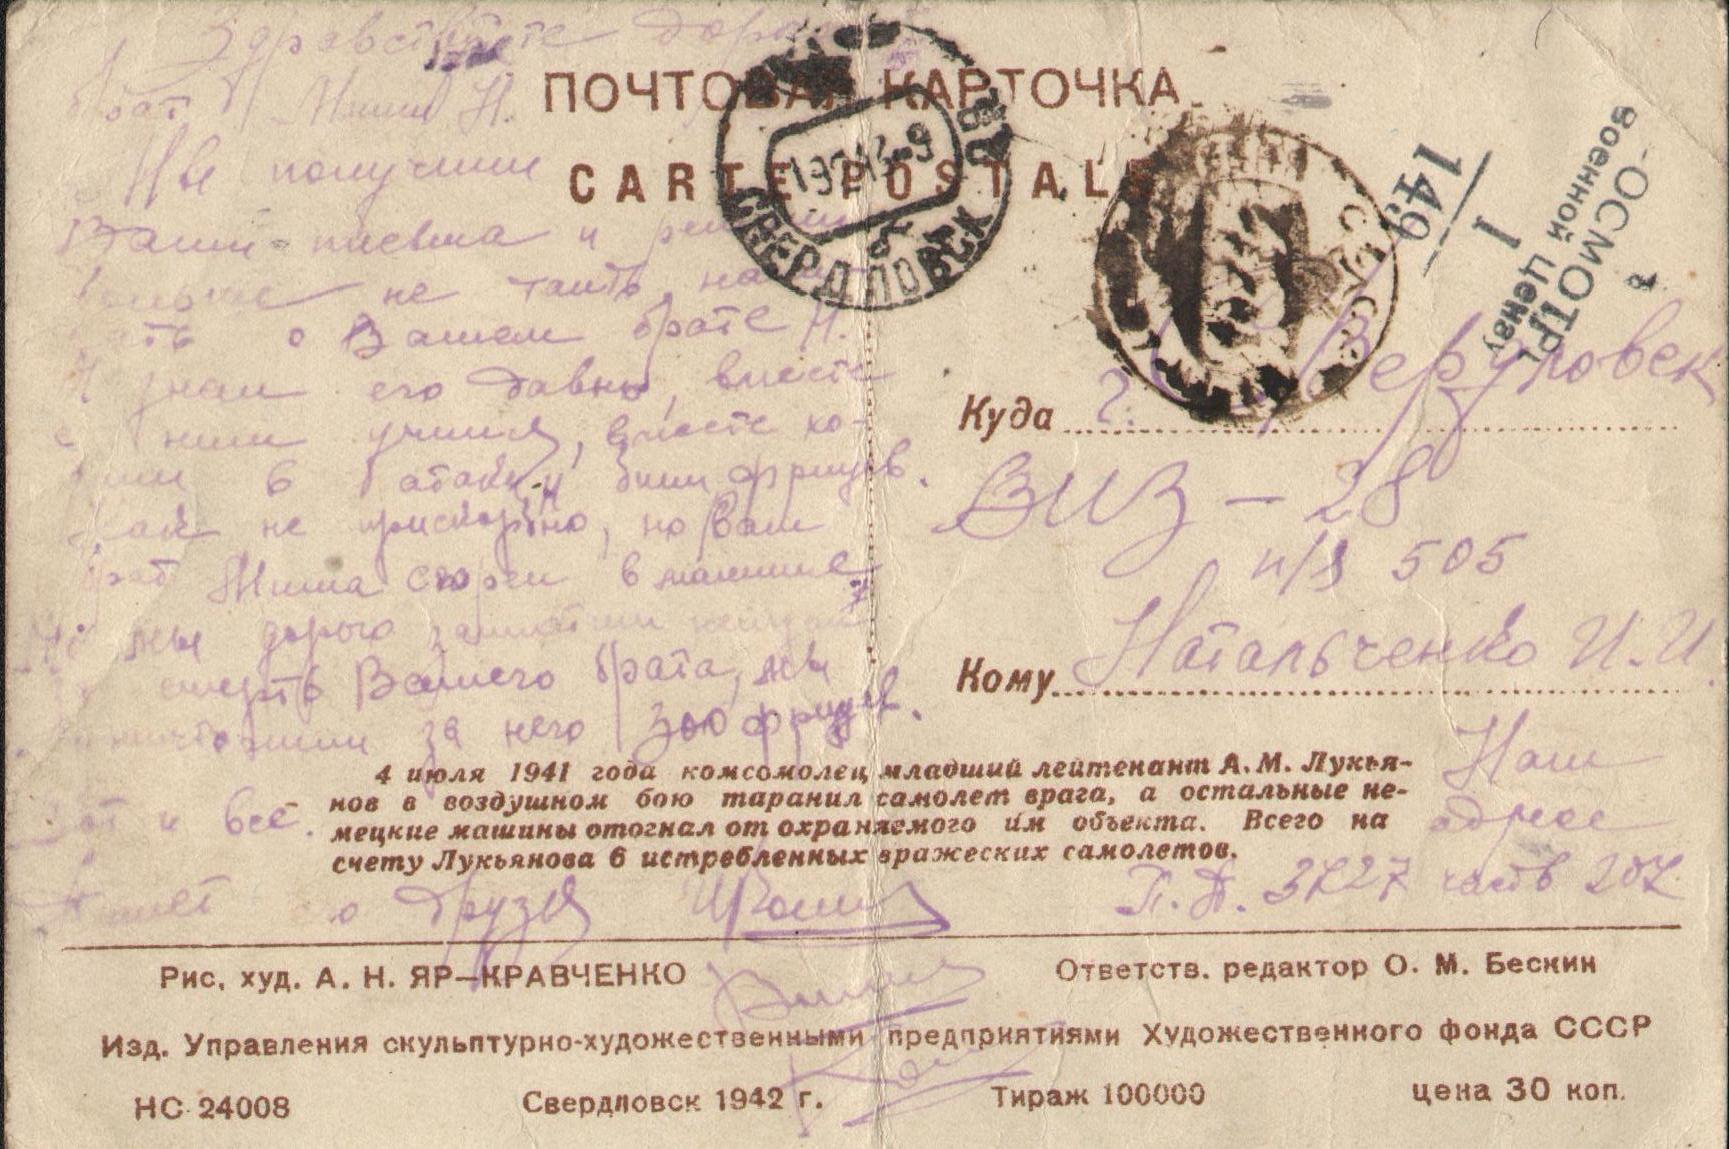 Здравствуйте дорогой
брат Миши Н.
Мы получили
Ваши письма и решили
больше не таить, написать
о Вашем брате Н.
Я знал его давно, вместе
с ним учился, вместе ходили
в атаку и били фрицев.
Как не прискорбно, но Ваш
брат Миша сгорел в машине
Но мы дорого заплатили немцам
за смерть Вашего брата, мы
уничтожили за него фрицев.
Вот и все.
Пишет его друзья
ПОЧТОВАЯ КАРТОЧКА
CARTE POSTALE
СВЕРДЛОВСК
СССР
ОСМОТРЕНО
Военной Цензурой
1
149
Куда г. Свердловск
ВИЗ - 28
п/я 505
Кому Натальченко И. И.
4 июля 1941 года комсомолец младший лейтенант А. М. Лукья-
нов в воздушном бою таранил самолет врага, а остальные не-
мецкие машины отогнал от охраняемого им объекта. Всего на
счету Лукьянова 6 истребленных вражеских самолетов.
Наш
адрес
П. П. 3727 часть 207.
Рис. худ. А. Н. ЯР—КРАВЧЕНКО
Ответств. редактор О. М. Бескин
Изд. Управления скульптурно-художественными предприятиями Художественного фонда СССР
НС 24008 Свердловск 1942 г. Тираж 100000 цена 30 коп.